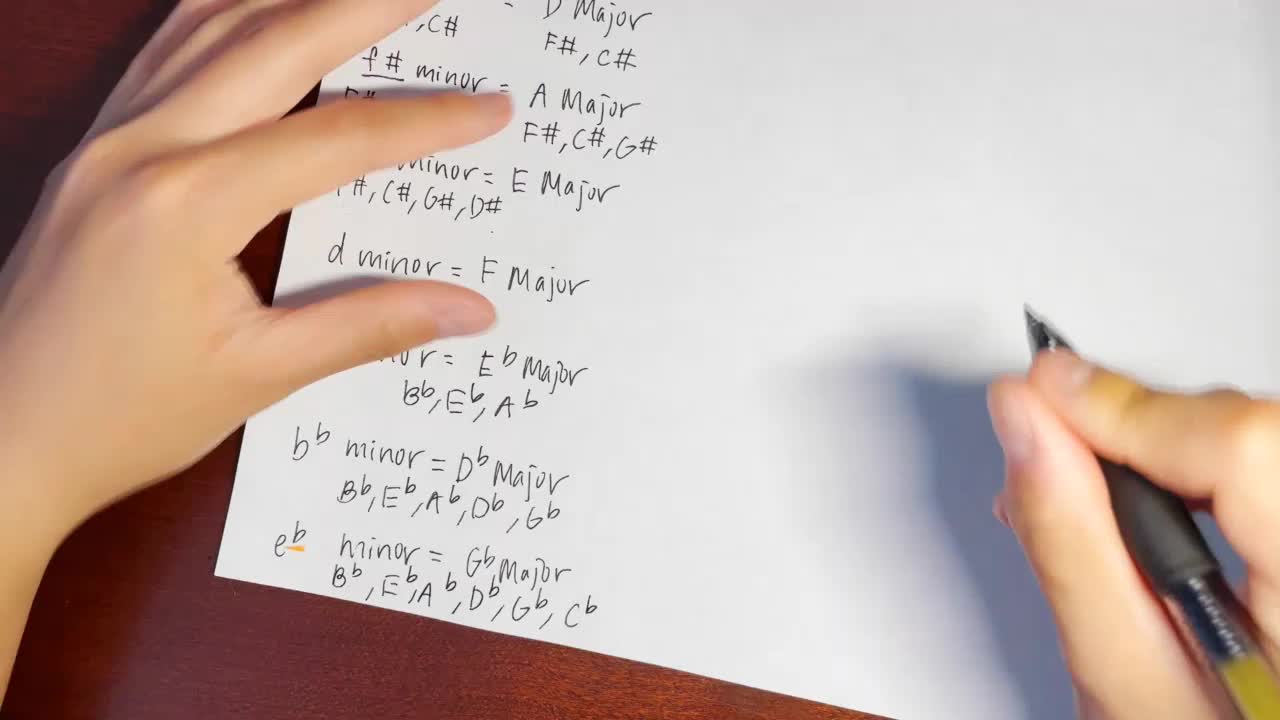 = D Major
, C# F#, C#
f# minor = A Major
F#, C#, G#
minor = E Major
#, C#, G#, D#
d minor = F Major
= Eb Major
Bb, Eb, Ab
bb minor = Db Major
Bb, Eb, Ab, Db, Gb
eb minor = Gb Major
Bb, Eb, Ab, Db, Gb, Cb